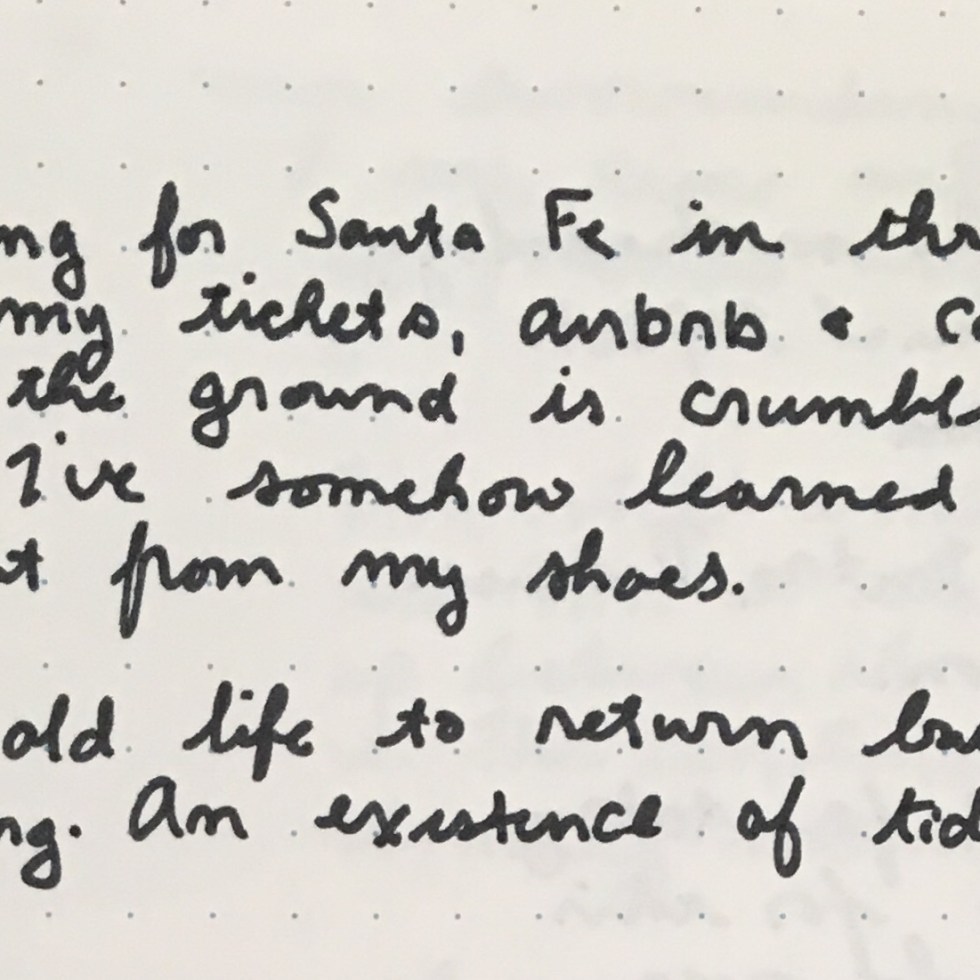 ng for Santa Fe in thr
my tickets, airbnb & c
the ground is crumbl
I've somehow learned
t from my shoes.
old life to return ba
ng. An existence of tid